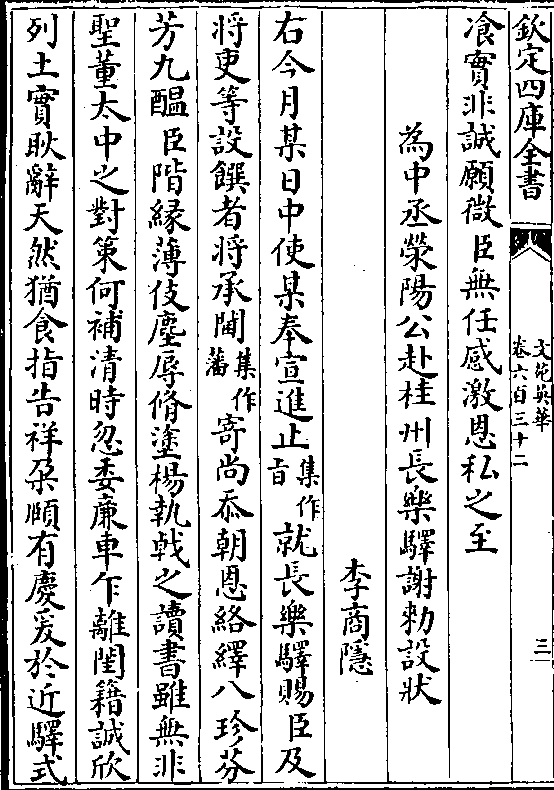 欽定四庫全書
文苑英華
卷六百三十二
三
飡實非誠願微臣無任感激恩私之至
為中丞滎陽公赴桂州長樂驛謝勅設狀
李商隱
右今月某日中使某奉宣進止集作旨就長樂驛賜臣及
將吏等設饌者將承閫集作藩寄尚忝朝恩絡繹八珍芬
芳九醖臣階緣薄伎塵辱脩塗楊執戟之讀書雖無非
聖董太中之對策何補清時忽委亷車乍離閨籍誠欣
列土實耿辭天然猶食指告祥朶頥有慶爰於近驛式